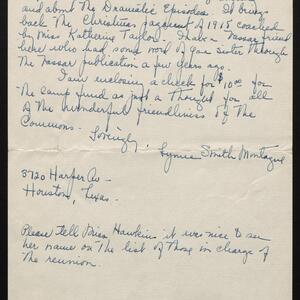 and about the Dramatic Episodes. It brings
back The Christmas pageant of 1915 coached
by Miss Katharine Taylor. I have a Vassar friend
here who had some word of your sister through
The Vassar publication a few years ago.
I am enclosing a check for $10.00 for
The Camp fund as just a Thought for all
of The wonderful friendliness of The
Commons.
Lovingly,
Lynne Smith Montague
3720 Harper Av -
Houston, Texas.
Please Tell Miss Hawkins it was nice to see
her name on The list of Those in charge of
The reunion.